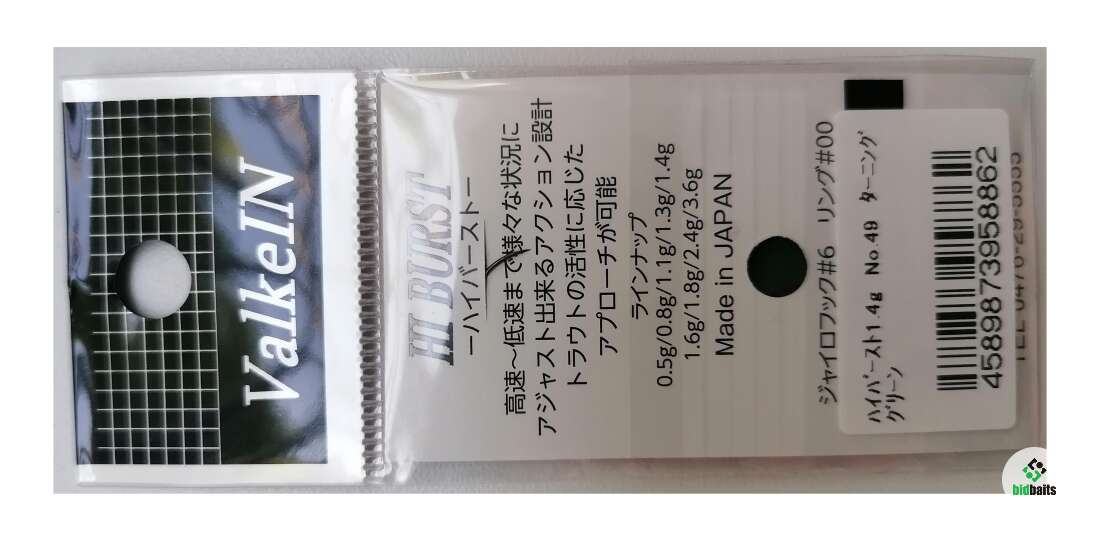 ValkeIN
HI BURST
ーハイバーストー
高速～低速まで様々な状況に
アジャスト出来るアクション設計
トラウトの活性に応じた
アプローチが可能
ラインナップ
0.5g/0.8g/1.1g/1.3g/1.4g
1.6g/1.8g/2.4g/3.6g
Made in JAPAN
ジャイロフック#6 リング#00
ハイバースト1.4g No.49 ターニング
グリーン
4589873958862
bidbaits